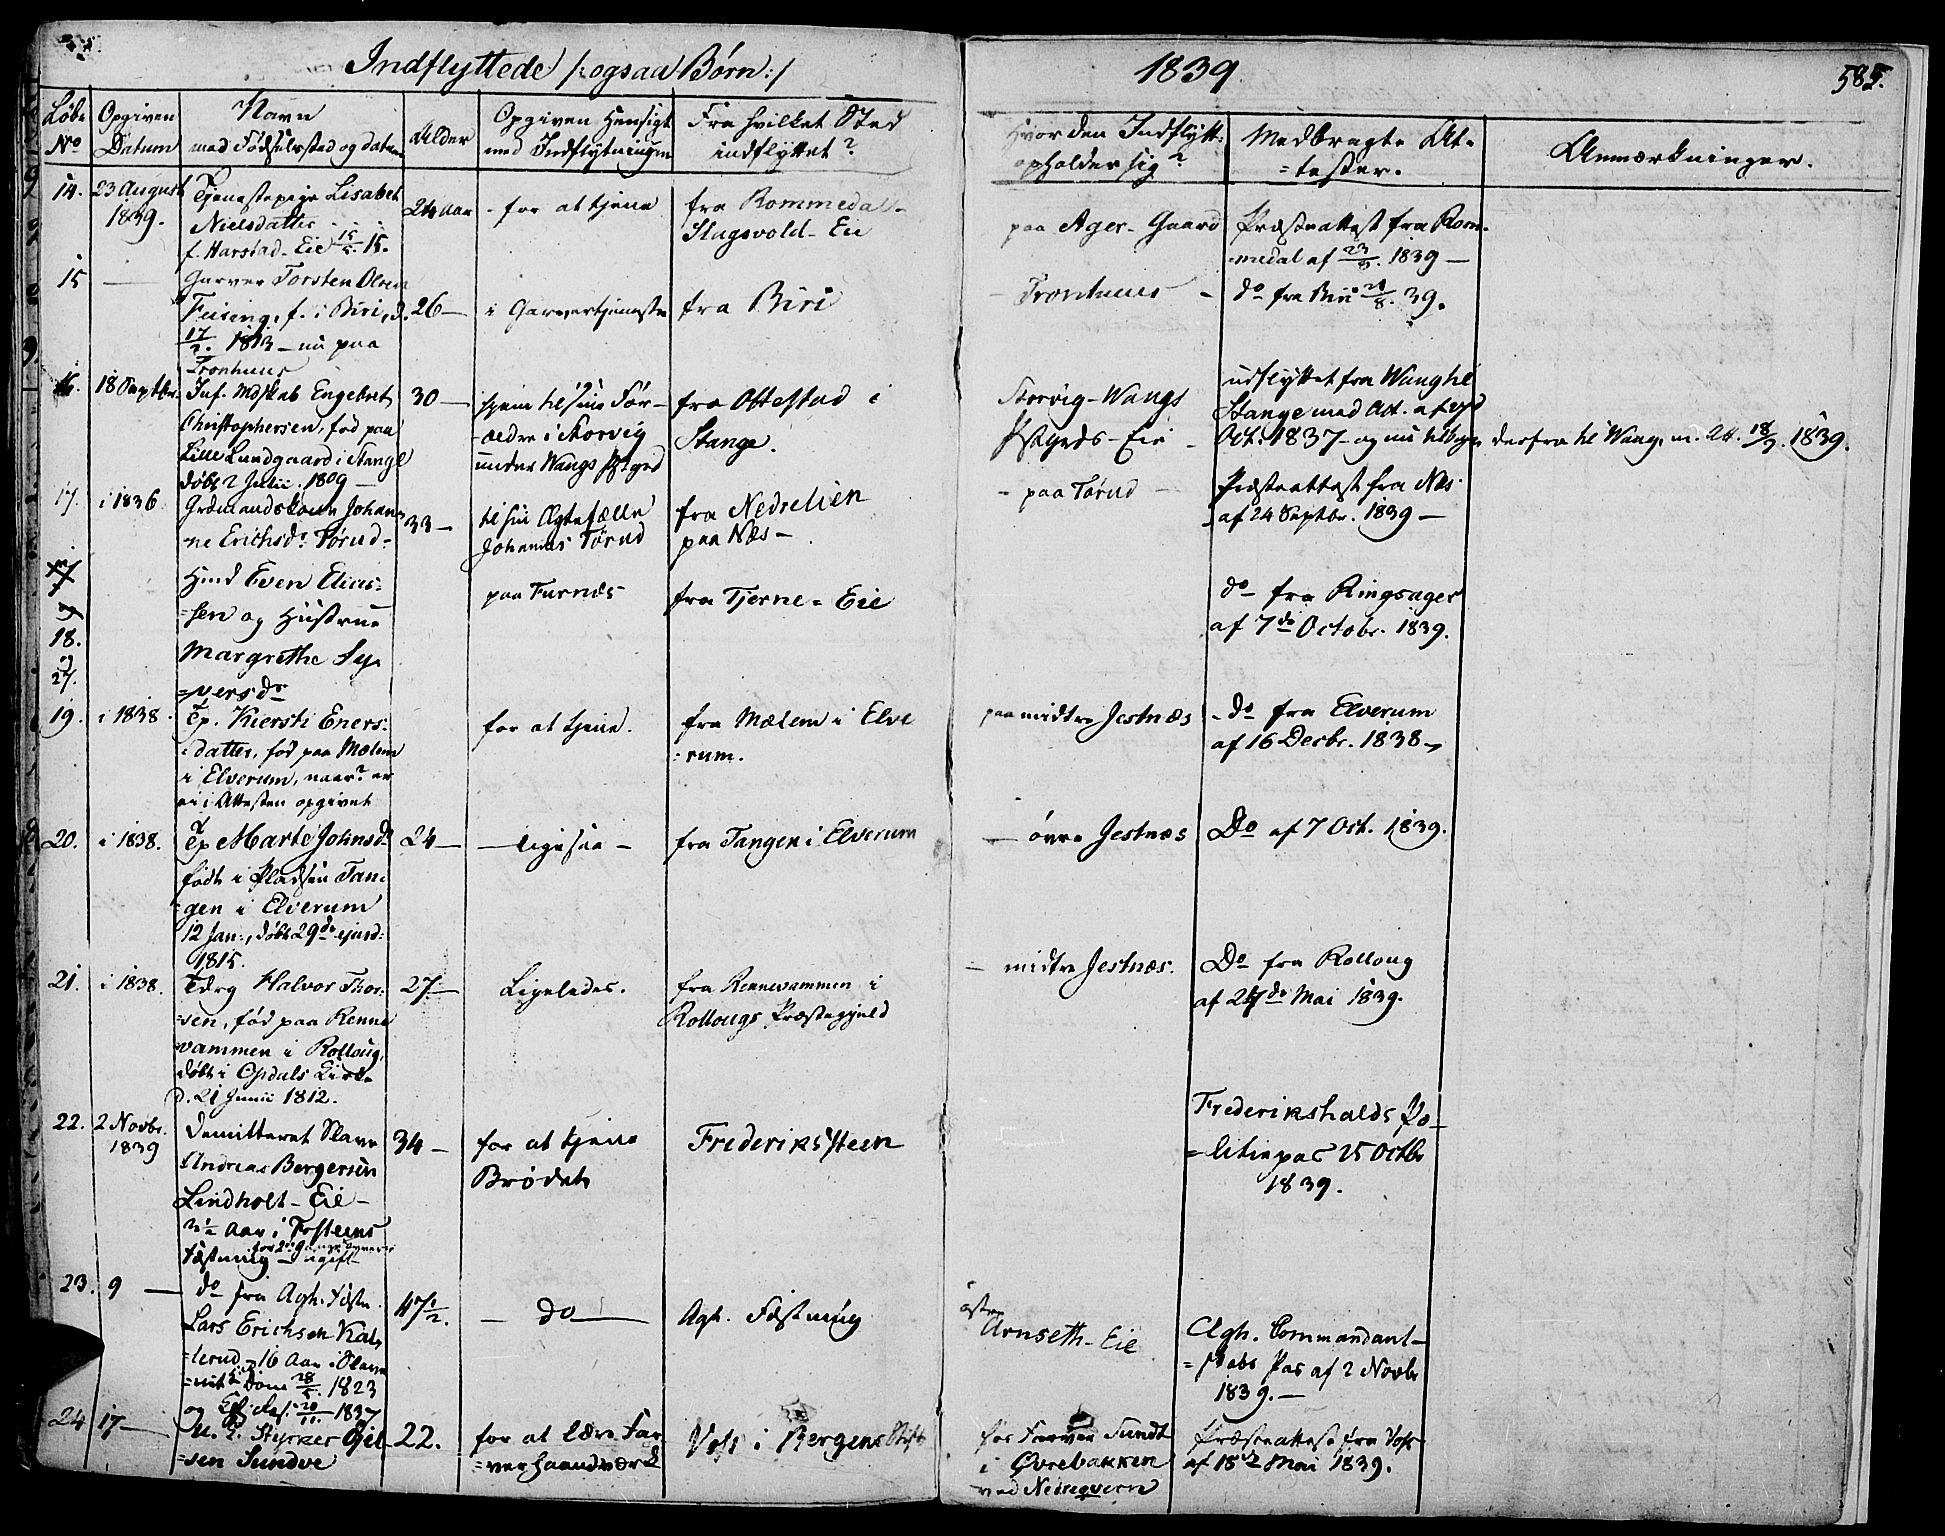 Indflyttede /: ogsaa Børn :/ 1839 585.
Løbe No
Opgiven Datum
Navn med Fødselssted og datum
Alder
Opgiven Hensigt med Indflytningen
Fra hvilket Sted indflyttet?
Hvor den Indflytt: opholder sig?
Medbragte At=
=tester.
Anmærkninger.
14. 23 August 1839.
Tjenestepige Lisabet
Nielsdatter
f. Harstad-Eie 15/5. 15.
24 Aar
- for at tjene
fra Rommedal-
Slagsvold-Eie
paa Ager-Gaard
Præsteattest fra Rom-
medal af 23/8. 1839 —
15 —
Garver Torsten Olsen
f. i Biri, d.
17/2. 1813 – nu paa
Tronhuus
26 —
i Garvertjeneste
fra Biri
- Tronhuus -
do fra Biri 20/8. 39.
16. 18 Septbr.
Inf. Mdskab Engebret
Christophersen, fød paa
Lille Lundgaard i Stange
døbt 2 Julii. 1809 —
30 —
hjem til sine For-
-ældre i Storvig
under Wangs Pstgjd
fra Ottestad i
Stange.
Storvig-Wangs
Pstgjds-Eie -
udflyttet fra Wang til
Stange med Att. af
Oct. 1837 – og nu tilbage derfra til Wang, m. Att. 18/9. 1839.
17. i 1836
Grdmandskone Johan-
ne Erichsdr Torud-
33 —
til sin Ægtefælle
Johannes Torud
fra Nedrelien
paa Næs -
- paa Torud -
Præsteattest fra Næs
af 24 Septbr. 1839 —
17
og
18.
og
27.
Hmd Even Elias=
=sen og Hustrue
Margrethe Sy-
=versdr
paa Furnæs
fra Tjerne=Eie
do fra Ringsager
af 7de Octobr. 1839.
19. i 1838.
Tp. Kiersti Eners=
=datter, fød paa Mælem
i Elverum, naar? er
ei i Attesten opgivet
for at tjene.
fra Mælem i Elve
=rum.
paa midtre Jestnæs
- do fra Elverum
af 16 Decbr. 1838 -
20. i 1838.
Tp Marte Johnsdr
født i Pladsen Tan=
=gen i Elverum
12 Jan:, døbt 29de ejusd:
1815.
24 —
— ligesaa -
fra Tangen i Elverum
— øvre Jestnæs
Do af 7 Oct. 1839.
21. i 1838.
Tdrg Halvor Thor=
=sen, fød paa Renne
vammen i Rolloug,
døbt i Opdals Kirke
d. 21 Junii 1812.
27 —
Ligeledes.
fra Rennevammen i
Rollougs Præstegjeld
— midtre Jestnæs.
Do fra Rolloug
af 24de Mai 1839.
22. 2 Novbr. 1839
Demitteret Slave
Andreas Bergersen
Lindholt-Eie -
Aar i
Fæstning
34 -
for at tjene
Brødet
Frederikssteen
Frederikshalds Po-
=litiepas 25 Octbr
1839.
23. 9 —
do fra Agh. Fæstn.
Lars Erichsen Kal-
=lerud, 16 Aar i Slave
Dom 28/5. 1823
og 20/11. 1837
47 1/2.
— do —
Agh. Fæstning
østre
Arnseth-Eie
Agh. Commandant-
=skabs Pas af 2 Novbr
1839. —
24 17 —
Styrker
=sen Sundve
22.
for at lære Far-
=verhaandværk
Voss i Bergens Stift
hos Farver Sundt
i Øvrebakken
ved Nedreqvern
Præsteattest fra Voss
af 18de Mai 1839.